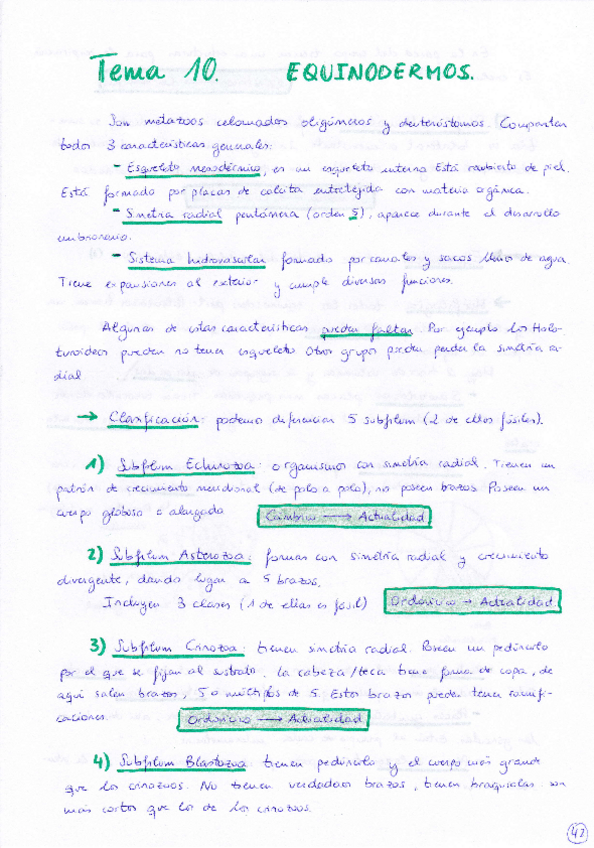 Tema 10. EQUINODERMOS.
Son metazoos celomados oligómeros y deuteróstomos. Comparten
todos 3 características generales:
- Esqueleto mesodérmico, es un esqueleto interno. Está recubierto de piel.
Está formado por placas de calcita entretejida con materia orgánica.
- Simetría radial pentámera (orden 5), aparece durante el desarrollo
embrionario.
- Sistema hidrovascular formado por canales y sacos llenos de agua.
Tiene expansiones al exterior y cumple diversas funciones.
Algunas de estas características pueden faltar. Por ejemplo los Holo-
turoideos pueden no tener esqueleto. Otros grupos pueden perder la simetría ra-
dial.
→ Clasificación: podemos diferenciar 5 subfilum (2 de ellos fósiles).
1) Subfilum Echinozoa: organismos con simetría radial. Tienen un
patrón de crecimiento meridional (de polo a polo), no poseen brazos. Poseen un
cuerpo globoso o alargado. Cámbrico → Actualidad
2) Subfilum Asterozoa: forman con simetría radial y crecimiento
divergente, dando lugar a 5 brazos.
Incluyen 3 clases (1 de ellas es fósil) Ordovícico → Actualidad.
3) Subfilum Crinozoa: tienen simetría radial. Poseen un pedúnculo
por el que se fijan al sustrato. La cabeza/teca tiene forma de copa, de
aquí salen brazos, 5 o múltiplos de 5. Estos brazos pueden tener ramifi-
caciones. Ordovícico → Actualidad
4) Subfilum Blastozoa: tienen pedúnculo y el cuerpo más grande
que los crinozoos. No tienen verdaderos brazos, tienen braquiolas son
más cortos que los de los crinozoos.